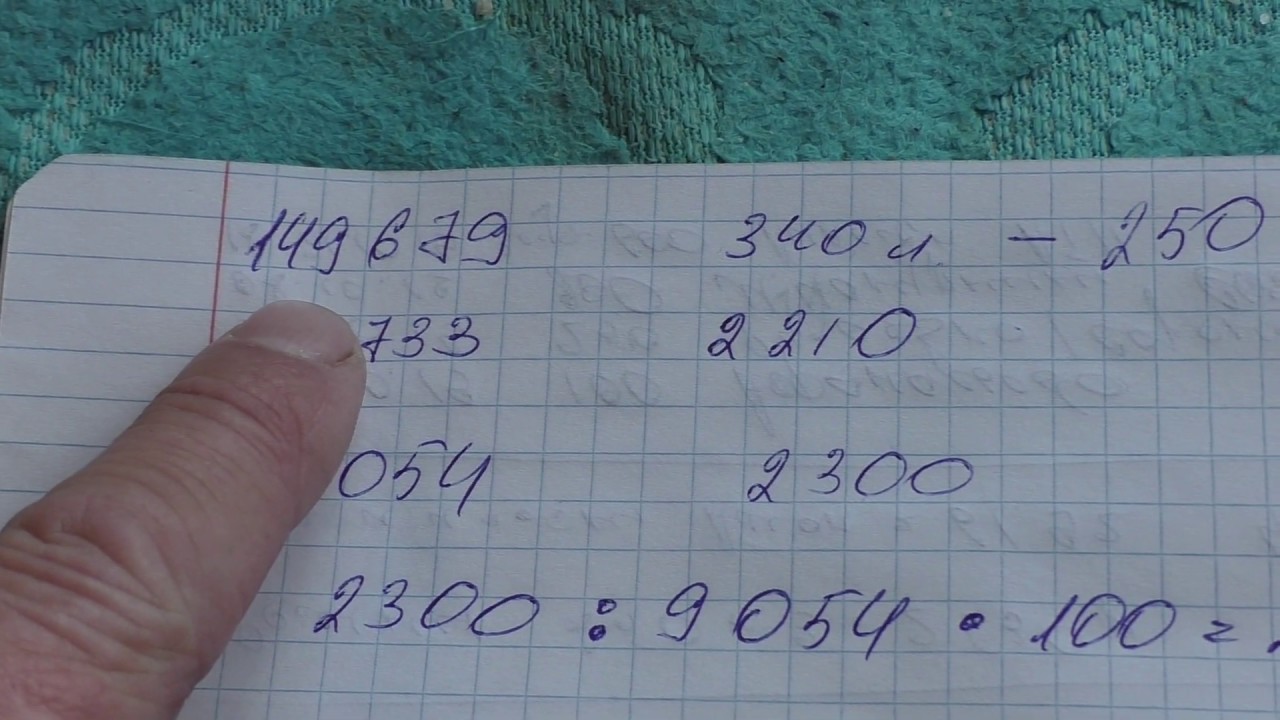 149 679 340 л - 250
733 2 210
054 2 300
2300 : 9 054 • 100 =